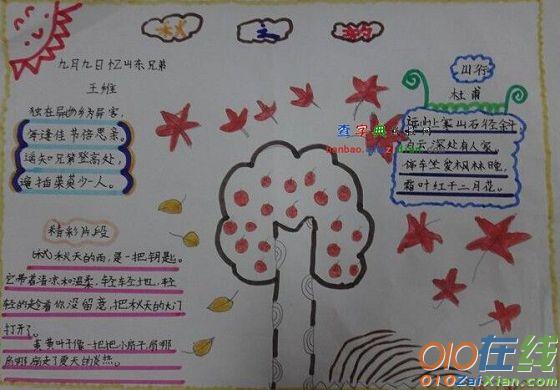 秋 主 韵
九月九日忆山东兄弟
王维
独在异乡为异客，
每逢佳节倍思亲。
遥知兄弟登高处，
遍插茱萸少一人。
山行
杜甫
远山上寒山石径斜
白云深处有人家。
停车坐爱枫林晚，
霜叶红于二月花。
精彩片段
秋天的雨，是一把钥匙。
它带着清凉和温柔，轻轻地，轻
轻的趁着你没留意，把秋天的大门
打开了。
黄黄叶子像一把把小扇子扇哪
扇哪扇走了夏天的炎热。
查字典
010在线
010ZaiXian.com